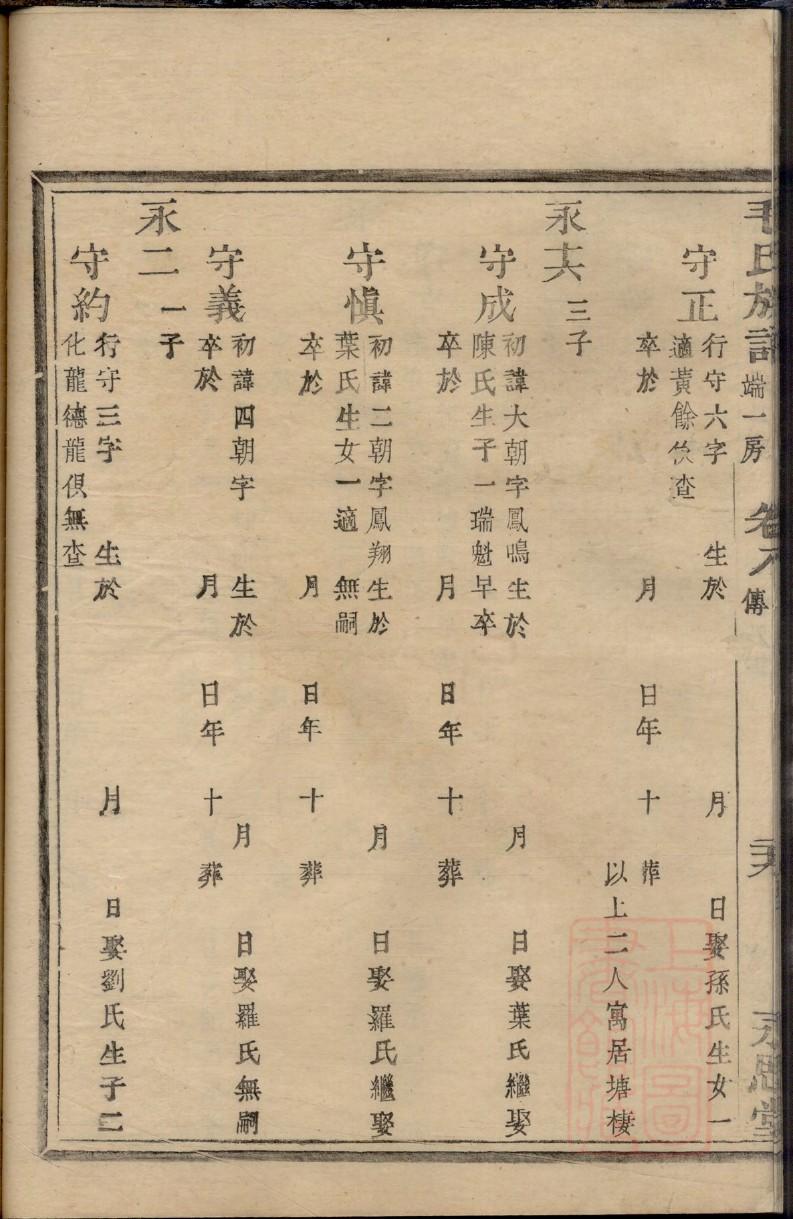 毛氏族譜 端一房 卷八 傳 永思堂
守正 行守六字 生於 月 日娶孫氏生女一
適黃餘俟查
卒於 月 日年 十 葬
以上二人寓居塘棲
永六 三子
守成 初諱大朝字鳳鳴生於 月 日娶葉氏繼娶
陳氏生子一瑞魁早卒
卒於 月 日年 十 葬
守愼 初諱二朝字鳳翔生於 月 日娶羅氏繼娶
葉氏生女一適 無嗣
卒於 月 日年 十 葬
守義 初諱四朝字 生於 月 日娶羅氏無嗣
卒於 月 日年 十 葬
永二 一子
守約 行守三字 生於 月 日娶劉氏生子二
化龍德龍俱無查